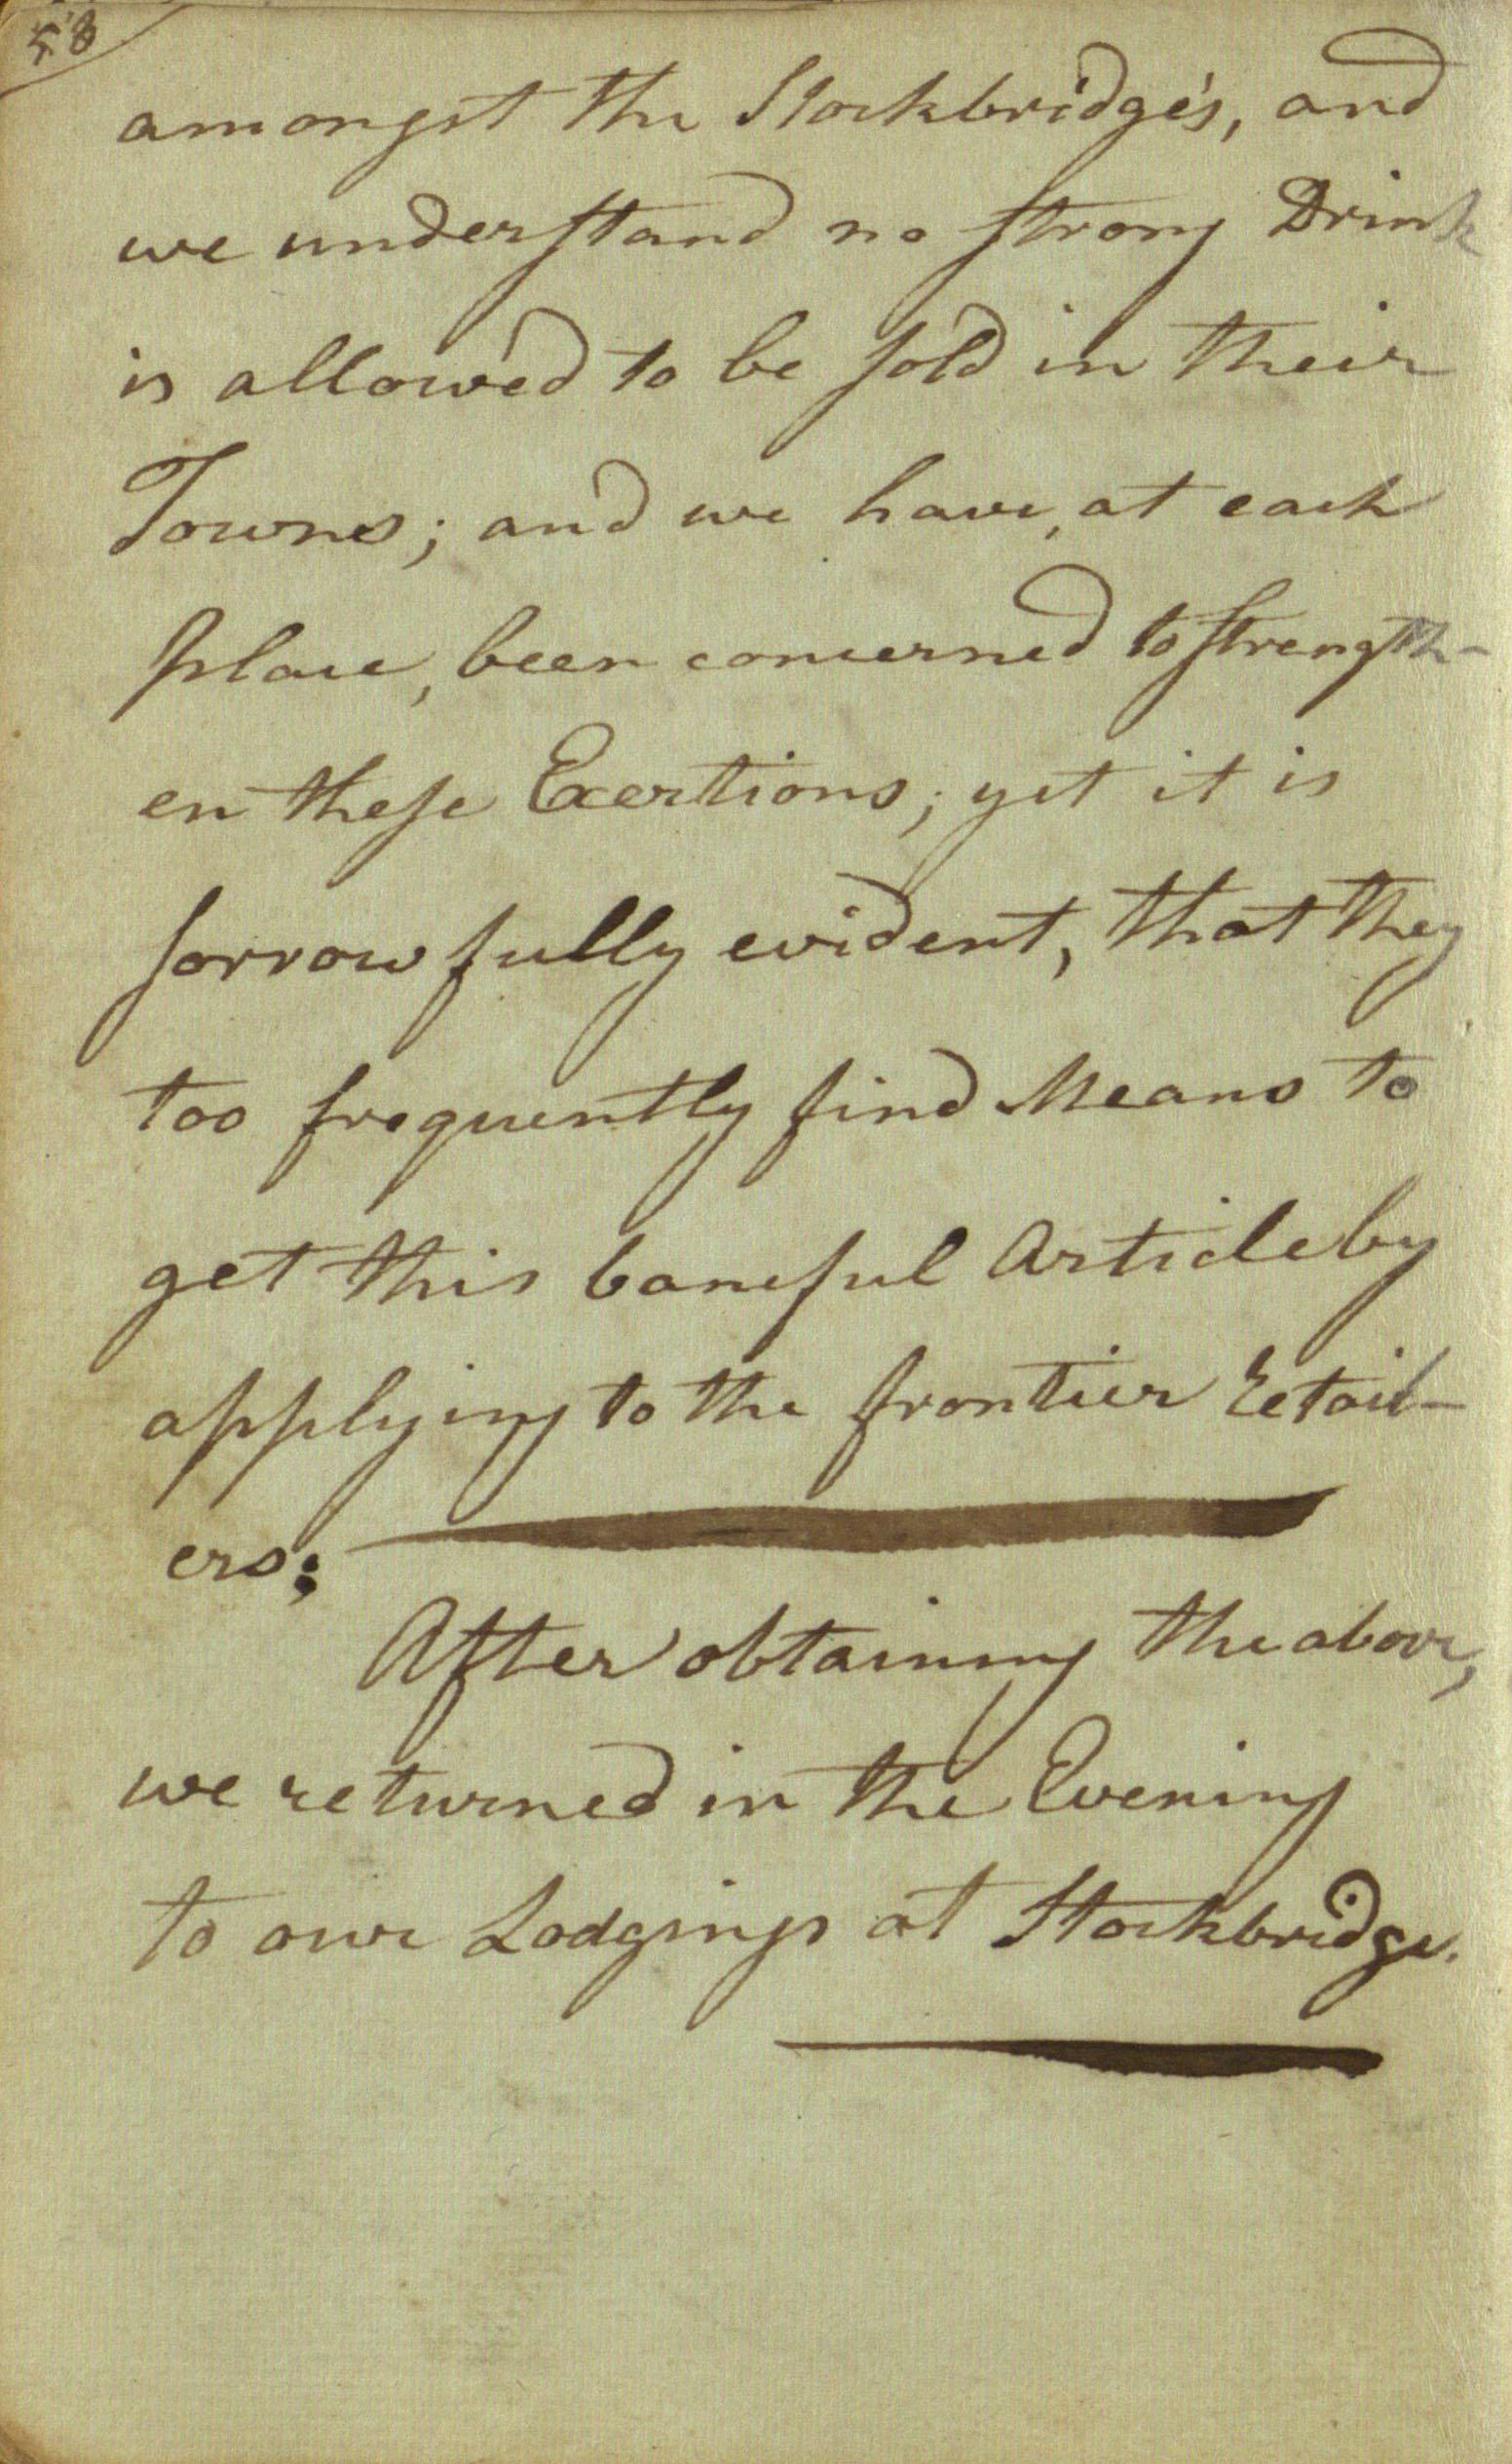 58
amongst the Stockbridge's, and
we understand no strong Drink
is allow'd to be sold in their
Towns; and we have, at each
place, been concerned to strength-
en these Exertions; yet it is
sorrowfully evident, that they
too frequently find Means to
get this baneful Article by
applying to the frontier retail-
ers;
After obtaining the above,
we returned in the Evening
to our Lodgings at Stockbridge.